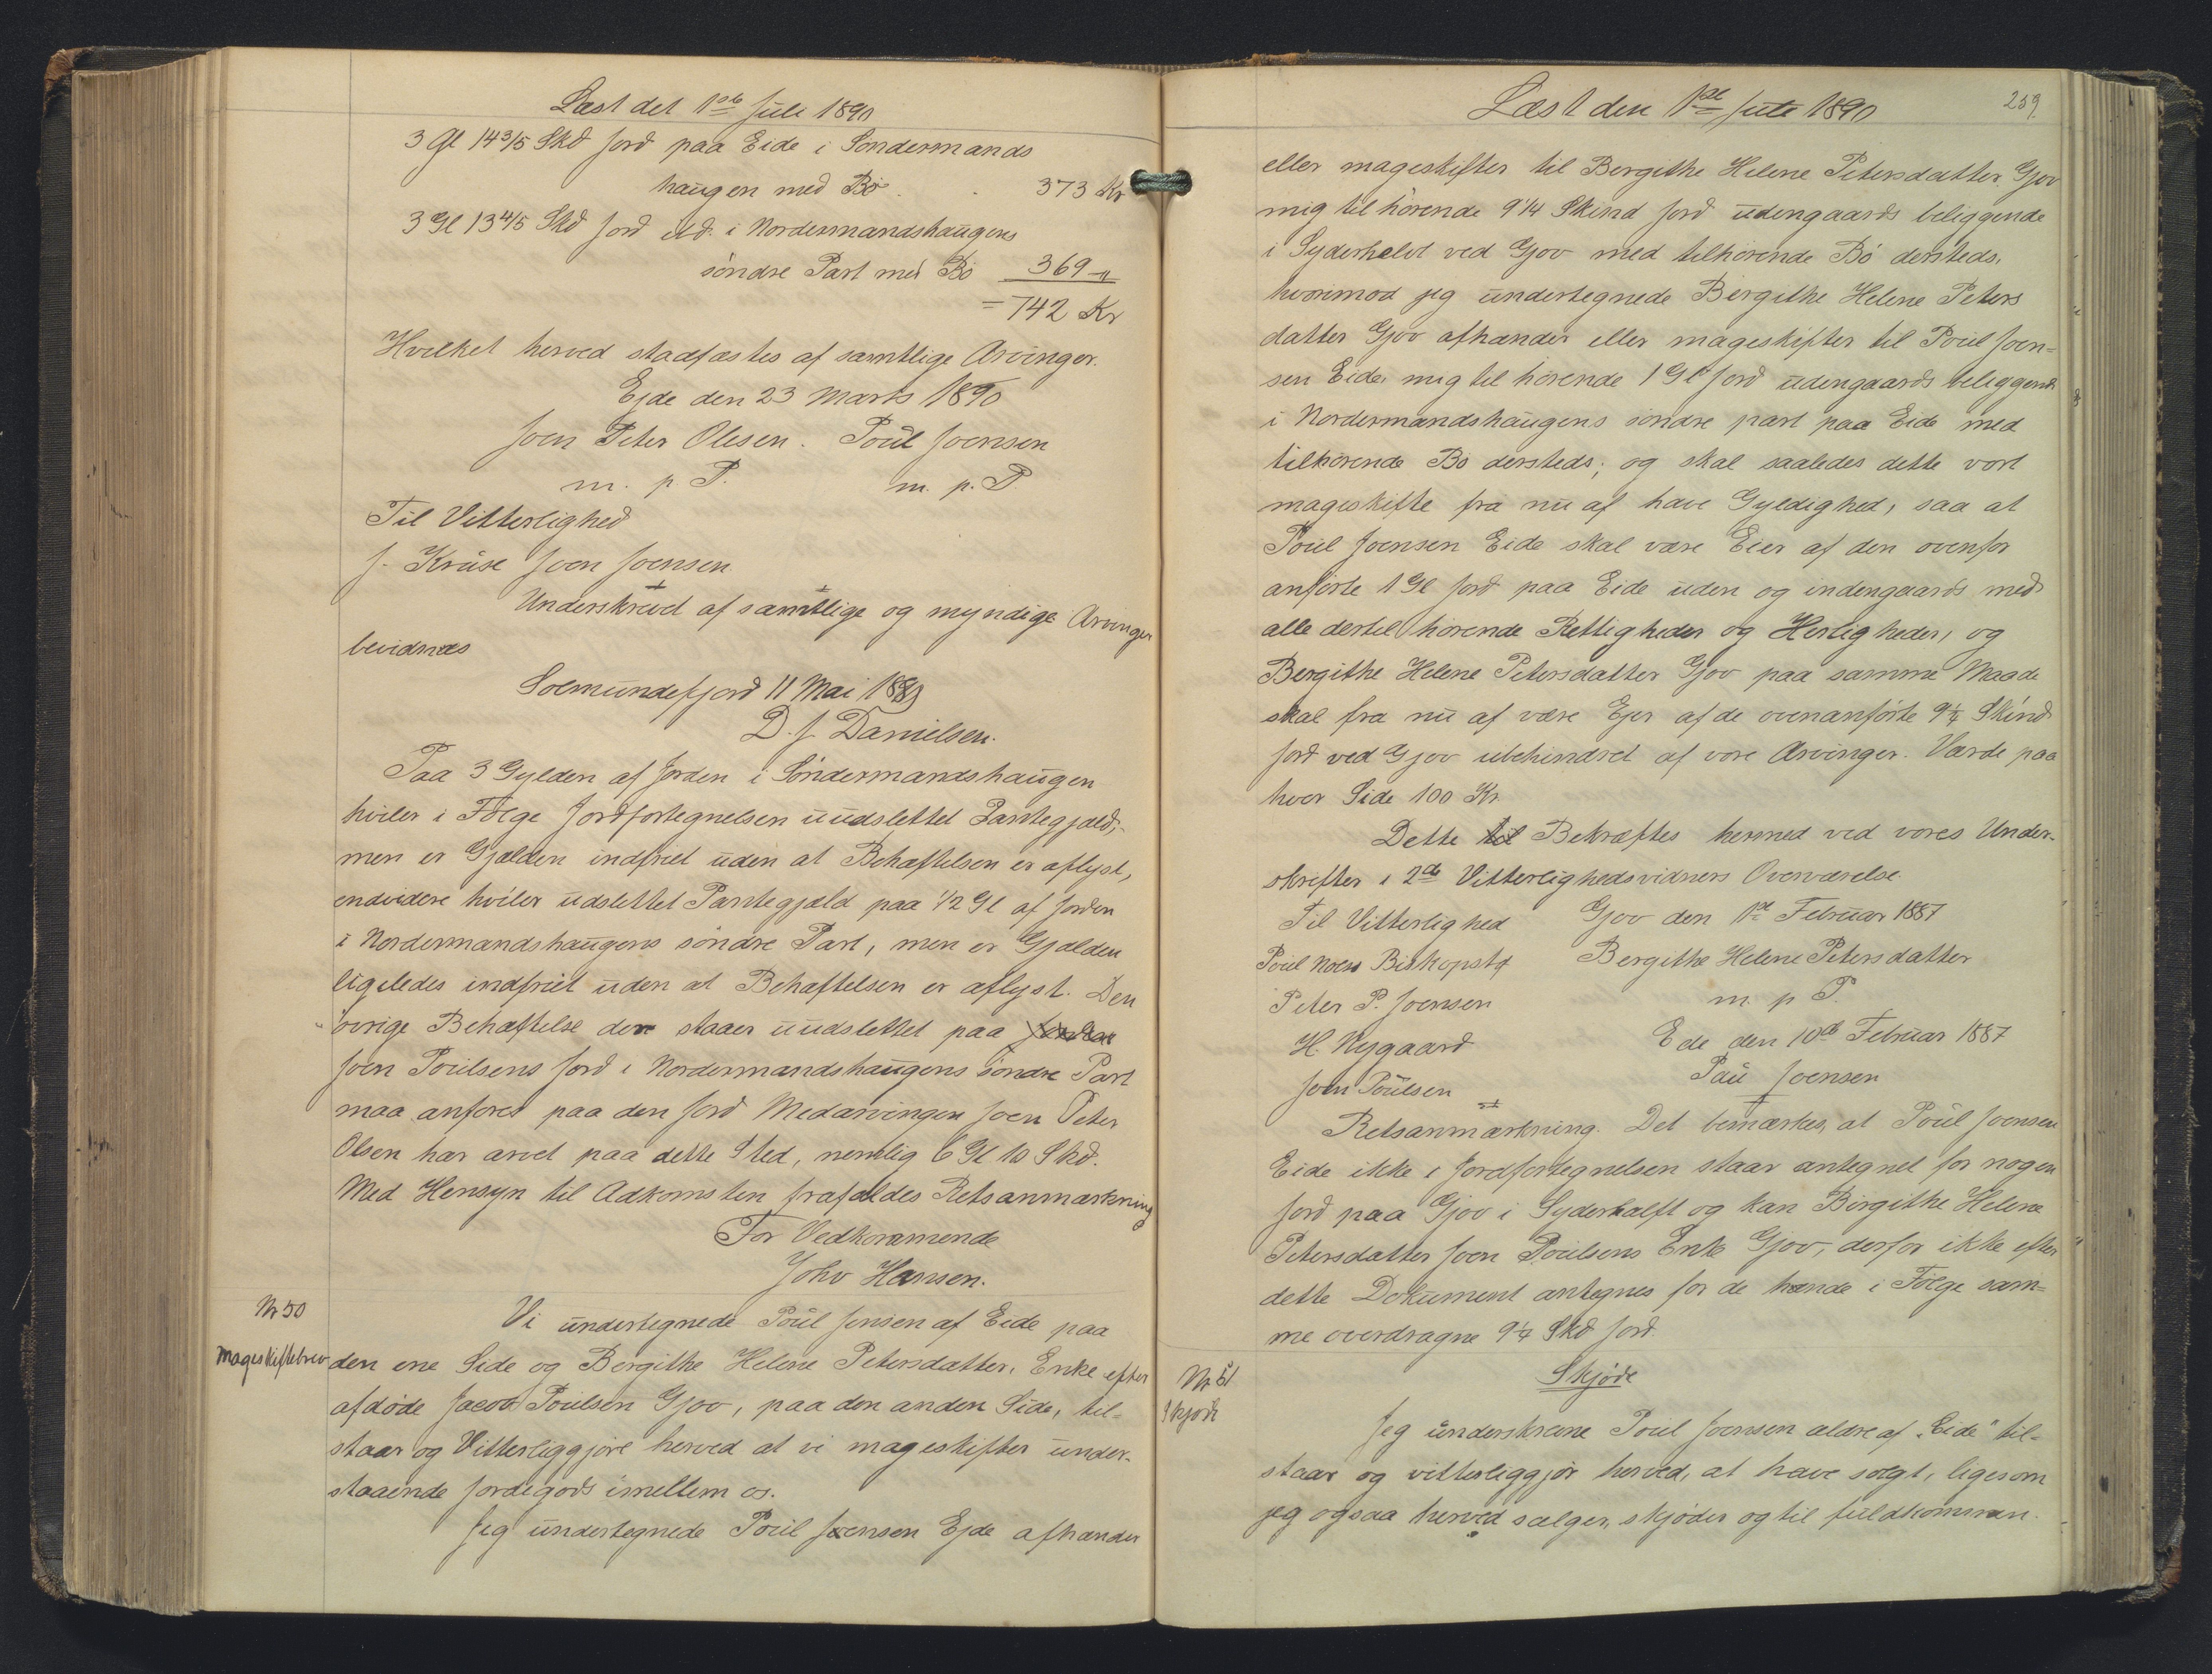 Læst det 1ste Juli 1890
3 Gl 14 3/5 Skd Jord paa Eide i Söndermands
haugen med Bö . . 373 Kr
3 Gl 13 4/5 Skd Jord ibd. i Nordermandshaugens
söndre Part med Bö 369 "
= 742 Kr
Hvilket herved stadfæstes af samtlige Arvinger.
Ejde den 23 Marts 1890
Joen Peter Olesen. Poul Joensen
m. p. P. m. p. P.
Til Vitterlighed
J. Kruse Joen Joensen
Underskrevet af samtlige og myndige Arvinger
bevidnes
Solmundefjord 11 Mai 1889
D. J. Danielsen.
Paa 3 Gylden af Jorden i Söndermandshaugen
hviler i Fölge Jordfortegnelsen uudslettet Pantegjæld,
men er Gjælden indfriet uden at Behæftelsen er aflyst,
endvidere hviler udslettet Pantegjæld paa 1/2 Gl af Jorden
i Nordermandshaugens söndre Part, men er Gjælden
ligeledes indfriet uden at Behæftelsen er aflyst. Den
övrige Behæftelse der staaer uudslettet paa
Joen Poulsens Jord i Nordermandshaugens söndre Part
maa anföres paa den Jord Medarvingen Joen Peter
Olsen har arvet paa dette Sted, nemlig 6 Gl 10 Skd.
Med Hensyn til Adkomsten frafaldes Retsanmærkning
For Vedkommende
Johv Hansen.
Nr 50
Mageskiftebrev
Vi undertegnede Poul Jensen af Eide paa
den ene Side og Bergithe Helene Petersdatter, Enke efter
afdöde Jacob Poulsen Gjov, paa den anden Side, til-
staar og Vitterliggjöre herved at vi mageskifter under-
staaende Jordegods imellem os.
Jeg undertegnede Poul Joensen Ejde afhænder
Læst den 1ste Juli 1890
259
eller mageskifter til Bergithe Helene Petersdatter Gjov
mig til hörende 9 1/4 Skind Jord udengaards beliggende
i Syderhelvt ved Gjov med tilhörende Bö dersteds,
hvorimod jeg undertegnede Bergithe Helene Peters
datter Gjov afhænder eller mageskifter til Poul Joen=
sen Eide, mig til hörende 1 Gl Jord udengaards beliggende
i Nordermandshaugens söndre part paa Eide med
tilhörende Bö dersteds; og skal saaledes dette vort
mageskifte fra nu af have Gyldighed, saa at
Poul Joensen Eide skal være Eier af den ovenfor
anförte 1 Gl Jord paa Eide uden og indengaards med
alle dertil hörende Rettigheder og Herligheder, og
Bergithe Helene Petersdatter Gjov paa samme Maade
skal fra nu af være Ejer af de ovenanförte 9 1/4 Skind
Jord ved Gjov ubehindret af vore Arvinger. Værde paa
hver Side 100 Kr.
Dette til Bekræftes hermed ved vores Under-
skrifter i 2de Vitterlighedsvidners Overværelse.
Til Vitterlighed Gjov den 1ste Februar 1887
Poul Bergithe Helene Petersdatter
Peter P. Joensen m. p P.
H. Nygaard Ede den 10de Februar 1887
Joen Poulsen Pau Joensen
Retsanmærkning. Det bemærkes, at Poul Joensen
Eide ikke i Jordfortegnelsen staar antegnet for nogen
Jord paa Gjov i Syderhalft og kan Birgithe Helene
Petersdatter Joen Poulsens Enke Gjov, derfor ikke efter
dette Dokument antegnes for de hænde i Fölge sam=
me overdragne 9 1/4 Skd Jord.
Skjöde
Nr 51
Skjöde
Jeg underskrevne Poul Joensen ældre af "Eide" til=
staar og vitterliggjör herved, at have solgt, ligesom
jeg ogsaa herved sælger, skjöder og til fuldkommen